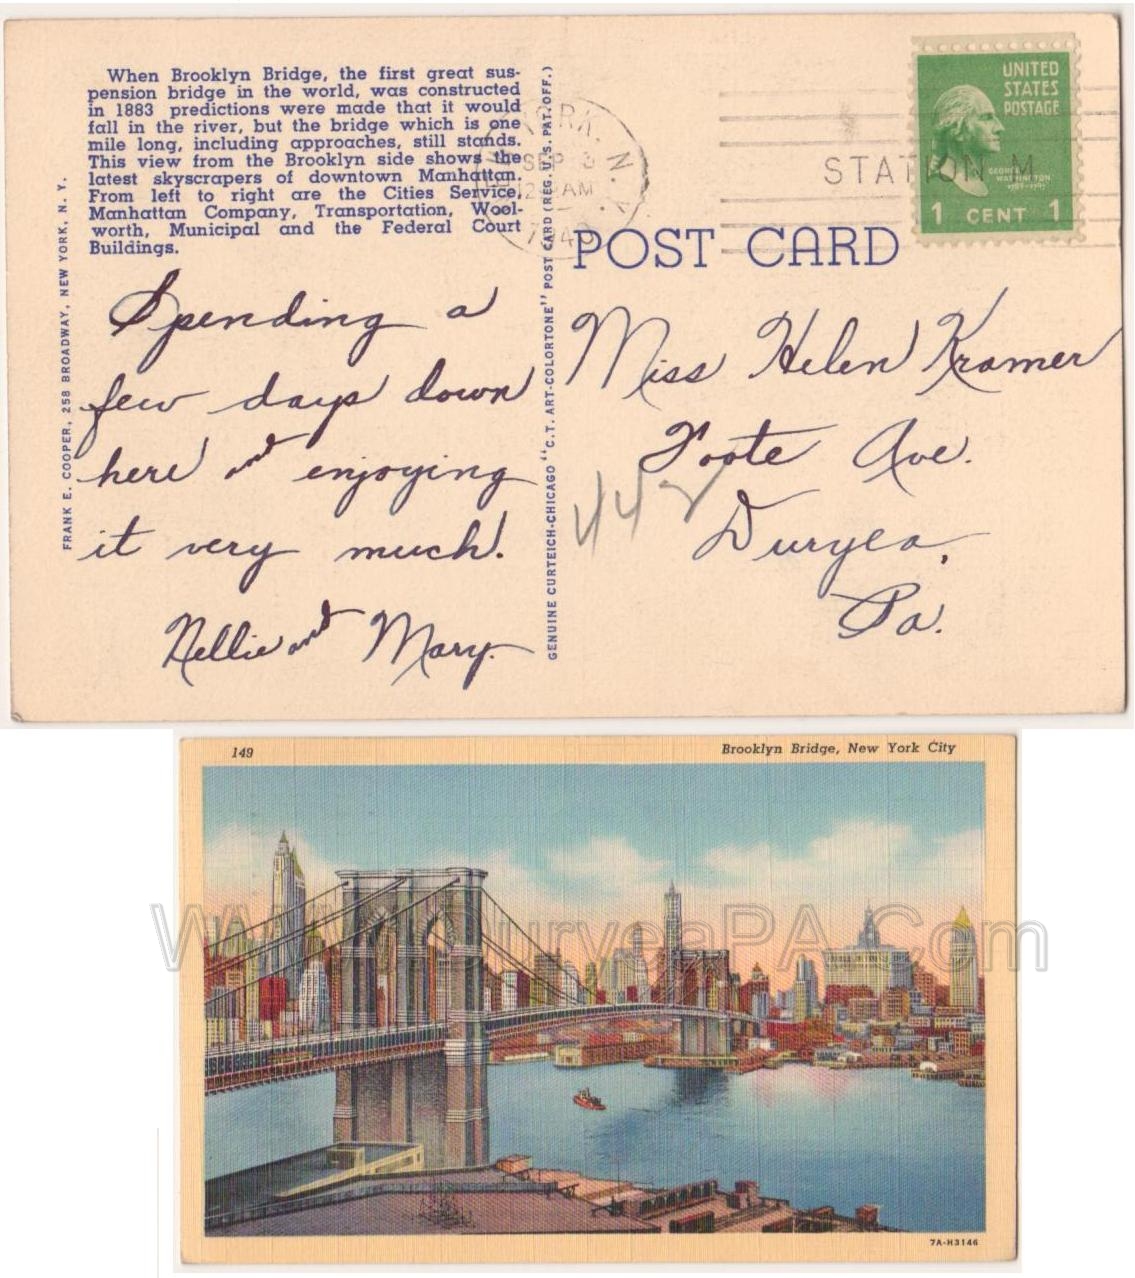 When Brooklyn Bridge, the first great sus-
pension bridge in the world, was constructed
in 1883 predictions were made that it would
fall in the river, but the bridge which is one
mile long, including approaches, still stands.
This view from the Brooklyn side shows the
latest skyscrapers of downtown Manhattan.
From left to right are the Cities Service,
Manhattan Company, Transportation, Wool-
worth, Municipal and the Federal Court
Buildings.
FRANK E. COOPER, 258 BROADWAY, NEW YORK, N. Y.
Spending a
few days down
here and enjoying
it very much.
Nellie and Mary.
GENUINE CURTEICH-CHICAGO "C.T. ART-COLORTONE" POST CARD (REG. U.S. PAT. OFF.)
YORK, N.
SEP
AM
STATION M
UNITED
STATES
POSTAGE
GEORGE
WASHINGTON
1 CENT 1
POST CARD
Miss Helen Kramer
Foote Ave.
442
Duryea,
Pa.
149
Brooklyn Bridge, New York City
WWW.DuryeaPA.Com
7A-H3146